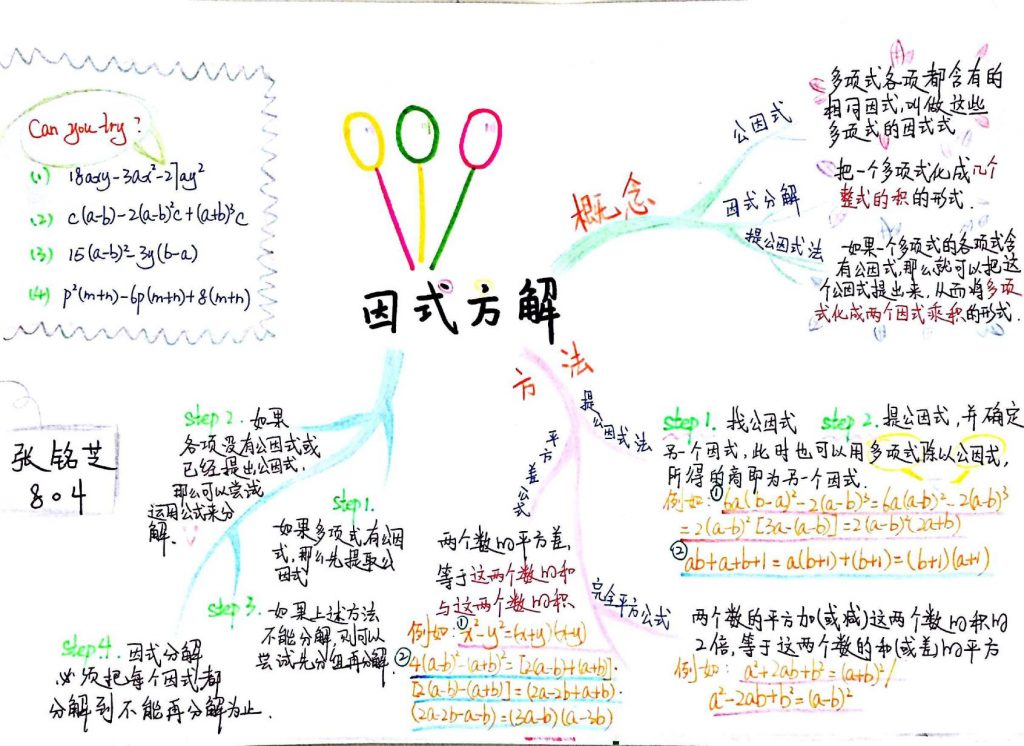 Can you try?
(1) 18axy-3ax²-27ay²
(2) c(a-b)-2(a-b)²c+(a+b)³c
(3) 15(a-b)²-3y(b-a)
(4) p²(m+n)-6p(m+n)+8(m+n)
因式方解
概念
公因式
多项式各项都含有的
相同因式,叫做这些
多项式的因式式
因式分解
把一个多项式化成几个
整式的积的形式.
提公因式法
如果一个多项式的各项式含
有公因式,那么就可以把这
个公因式提出来,从而将多项
式化成两个因式乘积的形式.
张铭芝
804
step 1.
如果多项式有公因
式,那么先提取公
因式
step 2. 如果
各项没有公因式或
已经提出公因式,
那么可以尝试
运用公式来分
解.
step 3. 如果上述方法
不能分解,则可以
尝试先分组再解.
step 4. 因式分解
必须把每个因式都
分解到不能再分解为止.
方法
提公因式法
step 1. 找公因式 step 2. 提公因式,并确定
另一个因式,此时也可以用多项式除以公因式,
所得的商即为另一个因式.
例如:①6a(b-a)²-2(a-b)³=6a(a-b)²-2(a-b)³
=2(a-b)²[3a-(a-b)]=2(a-b)²(2a+b)
②ab+a+b+1=a(b+1)+(b+1)=(b+1)(a+1)
平方差公式
两个数的平方差,
等于这两个数的和
与这两个数的积
例如:①x²-y²=(x+y)(x-y)
②4(a-b)²-(a+b)²=[2(a-b)+(a+b)]·
[2(a-b)-(a+b)]=(2a-2b+a+b)·
(2a-2b-a-b)=(3a-b)(a-3b)
完全平方公式
两个数的平方加(或减)这两个数的积的
2倍,等于这两个数的和(或差)的平方
例如: a²+2ab+b²=(a+b)²/
a²-2ab+b²=(a-b)²